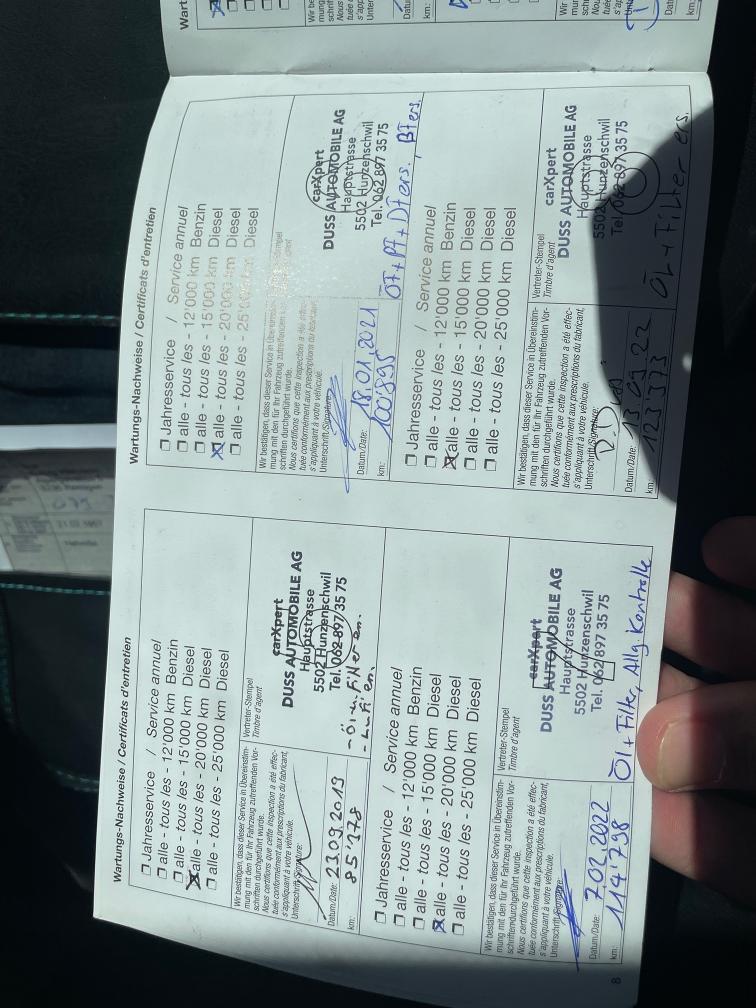 Wartungs-Nachweise / Certificats d'entretien
Jahresservice / Service annuel
alle - tous les - 12'000 km Benzin
alle - tous les - 15'000 km Diesel
alle - tous les - 20'000 km Diesel
alle - tous les - 25'000 km Diesel
Wir bestätigen, dass dieser Service in Übereinstim-
mung mit den für Ihr Fahrzeug zutreffenden Vor-
schriften durchgeführt wurde.
Nous certifions que cette inspection a été effec-
tuée conformément aux prescriptions du fabricant,
s'appliquant à votre véhicule.
Unterschrift/Signature:
Datum/Date: 23.09.2019
km: 85'378
Vertreter-Stempel
Timbre d'agent
carXpert
DUSS AUTOMOBILE AG
Hauptstrasse
5502 Hunzenschwil
Tel. 062 897 35 75
Jahresservice / Service annuel
alle - tous les - 12'000 km Benzin
alle - tous les - 15'000 km Diesel
alle - tous les - 20'000 km Diesel
alle - tous les - 25'000 km Diesel
Wir bestätigen, dass dieser Service in Übereinstim-
mung mit den für Ihr Fahrzeug zutreffenden Vor-
schriften durchgeführt wurde.
Nous certifions que cette inspection a été effec-
tuée conformément aux prescriptions du fabricant,
s'appliquant à votre véhicule.
Unterschrift/Signature:
Datum/Date: 7.02.2022
km: 114'798
Vertreter-Stempel
Timbre d'agent
carXpert
DUSS AUTOMOBILE AG
Hauptstrasse
5502 Hunzenschwil
Tel. 062 897 35 75
Öl + Filter, Allg. Kontrolle
8
Wartungs-Nachweise / Certificats d'entretien
Jahresservice / Service annuel
alle - tous les - 12'000 km Benzin
alle - tous les - 15'000 km Diesel
alle - tous les - 20'000 km Diesel
alle - tous les - 25'000 km Diesel
Wir bestätigen, dass dieser Service in Übereinstim-
mung mit den für Ihr Fahrzeug zutreffenden Vor-
schriften durchgeführt wurde.
Nous certifions que cette inspection a été effec-
tuée conformément aux prescriptions du fabricant,
s'appliquant à votre véhicule.
Unterschrift/Signature:
Datum/Date: 18.01.2021
km: 100'895
carXpert
DUSS AUTOMOBILE AG
Hauptstrasse
5502 Hunzenschwil
Tel. 062 897 35 75
ÖF + PF + DF ers.
Jahresservice / Service annuel
alle - tous les - 12'000 km Benzin
alle - tous les - 15'000 km Diesel
alle - tous les - 20'000 km Diesel
alle - tous les - 25'000 km Diesel
Wir bestätigen, dass dieser Service in Übereinstim-
mung mit den für Ihr Fahrzeug zutreffenden Vor-
schriften durchgeführt wurde.
Nous certifions que cette inspection a été effec-
tuée conformément aux prescriptions du fabricant,
s'appliquant à votre véhicule.
Unterschrift/Signature:
Datum/Date: 13.09.22
km: 123'373
Vertreter-Stempel
Timbre d'agent
carXpert
DUSS AUTOMOBILE AG
Hauptstrasse
5502 Hunzenschwil
Tel. 062 897 35 75
ÖL + Filter ers.